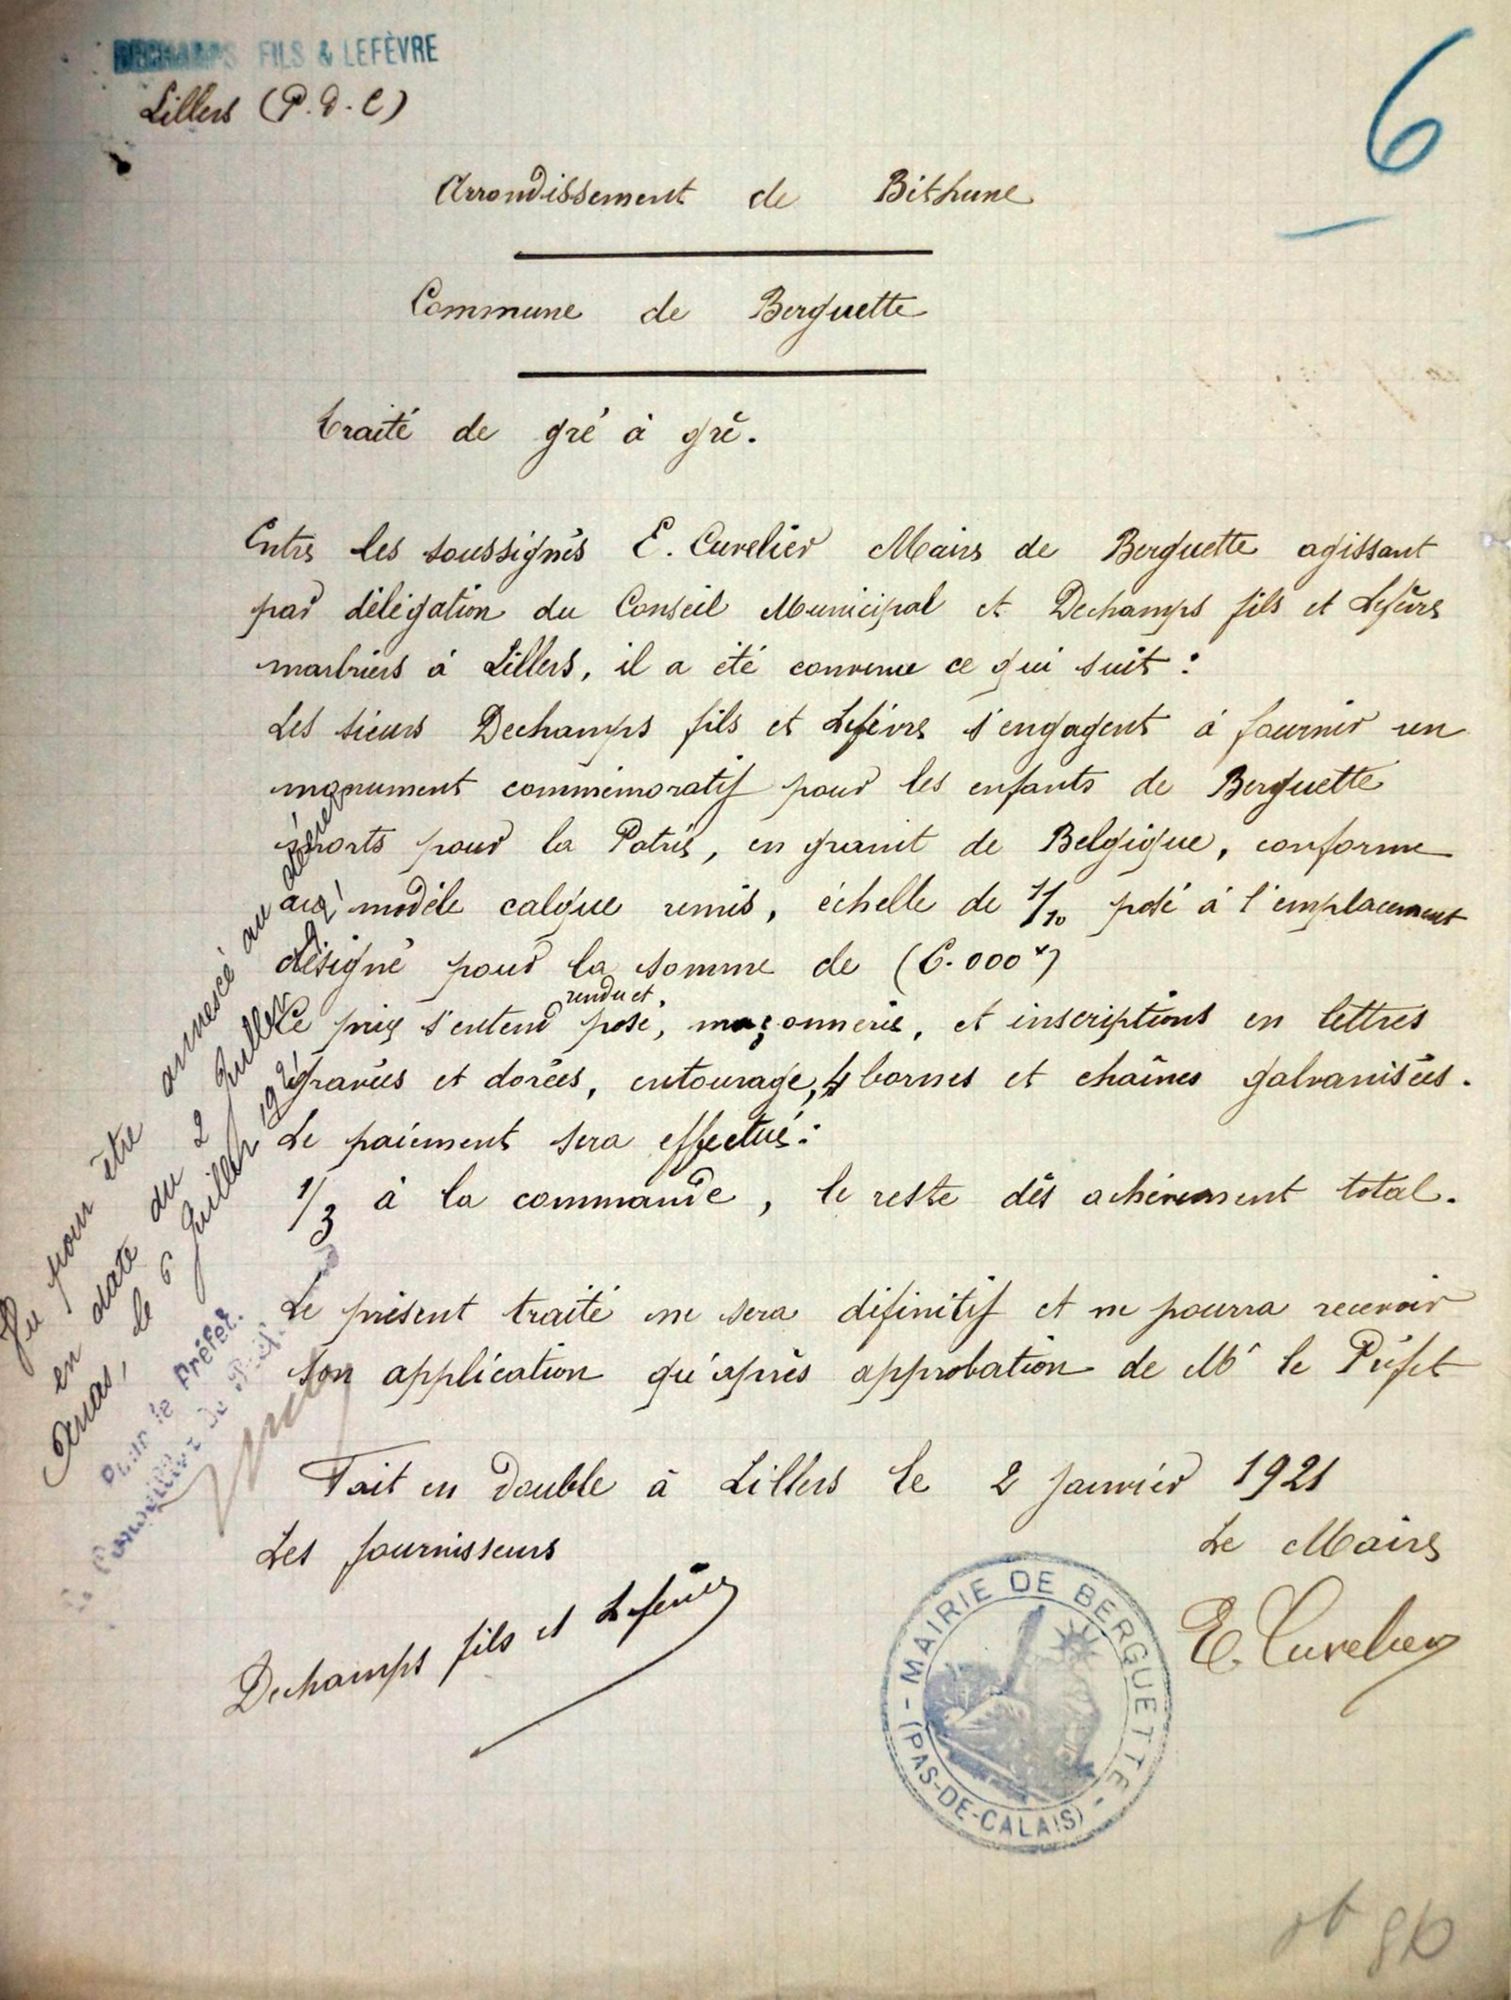 DECHAMPS FILS & LEFÈVRE
Lillers (P.d.C)
6
Arrondissement de Béthune
Commune de Berguette
Traité de gré à gré.
Entre les soussignés E. Cuvelier Maire de Berguette agissant
par délégation du Conseil Municipal et Dechamps fils et Lefèvre
marbriers à Lillers, il a été convenu ce qui suit :
Les sieurs Dechamps fils et Lefèvre s'engagent à fournir un
monument commémoratif pour les enfants de Berguette
morts pour la Patrie, en granit de Belgique, conforme
au modèle calque remis, échelle de 1/10 posé à l'emplacement
désigné pour la somme de (6.000 )
rendu et
Ce prix s'entend posé, maçonnerie, et inscriptions en lettres
gravées et dorées, entourage, 4 bornes et chaînes galvanisées.
Le paiement sera effectué :
1/3 à la commande, le reste dès achèvement total.
Le présent traité ne sera définitif et ne pourra recevoir
son application qu'après approbation de Mr le Préfet
Fait en double à Lillers le 2 Janvier 1921
Les fournisseurs
Le Maire
Dechamps fils et Lefèvre
E. Cuvelier
MAIRIE DE BERGUETTE
(PAS-DE-CALAIS)
Vu pour être annexé au décret
en date du 2 Juillet 1921
Arras, le 6 Juillet 1921
Pour le Préfet.
Le Conseiller de Préf.